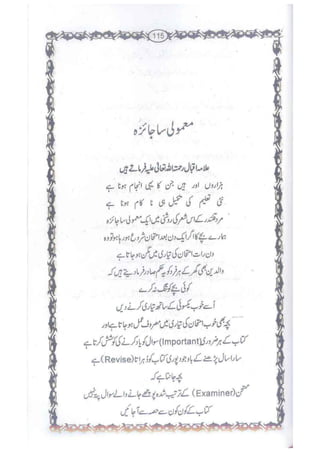 115
معمولی سا جائزہ
علامہ اقبال رحمۃ اللہ تعالیٰ علیہ فرماتے ہیں
ہزاروں اور ہیں جن کا یہی انجام ہونا ہے
نئی تعلیم کی تکمیل ہی نا کام ہونا ہے
مرد قلندر کے اس شعر کی روشنی میں ایک معمولی سا جائزہ
ہمارے بچے کا اگر ایک دن بعد امتحان شروع ہو رہا ہو تو وہ
دن رات امتحان کی تیاری میں مگن ہو جاتا ہے
والدین بھی گھر کے ہر فرد کو یہ حکم صادر فرما دیتے ہیں کہ
کوئی بچے کو تنگ نہ کرے
اُسے خوب یکسوئی کے ساتھ تیاری کرنے دیں
بچہ بھی خوب امتحان کی تیاری میں مصروف عمل ہو جاتا ہے اور
کتاب کے ہر ضروری (Important) سوال کو یاد کرنے کی کوشش کرتا ہے
سارا سال پڑھنے کے باوجود پوری کتاب کو دُہراتا (Revise) ہے
بچہ جانتا ہے کہ
ممتحن (Examiner) کے ترتیب شدہ پوچھے جانے والے سوال پتہ نہیں
کتاب کے کون کون سے حصہ سے آ جائیں